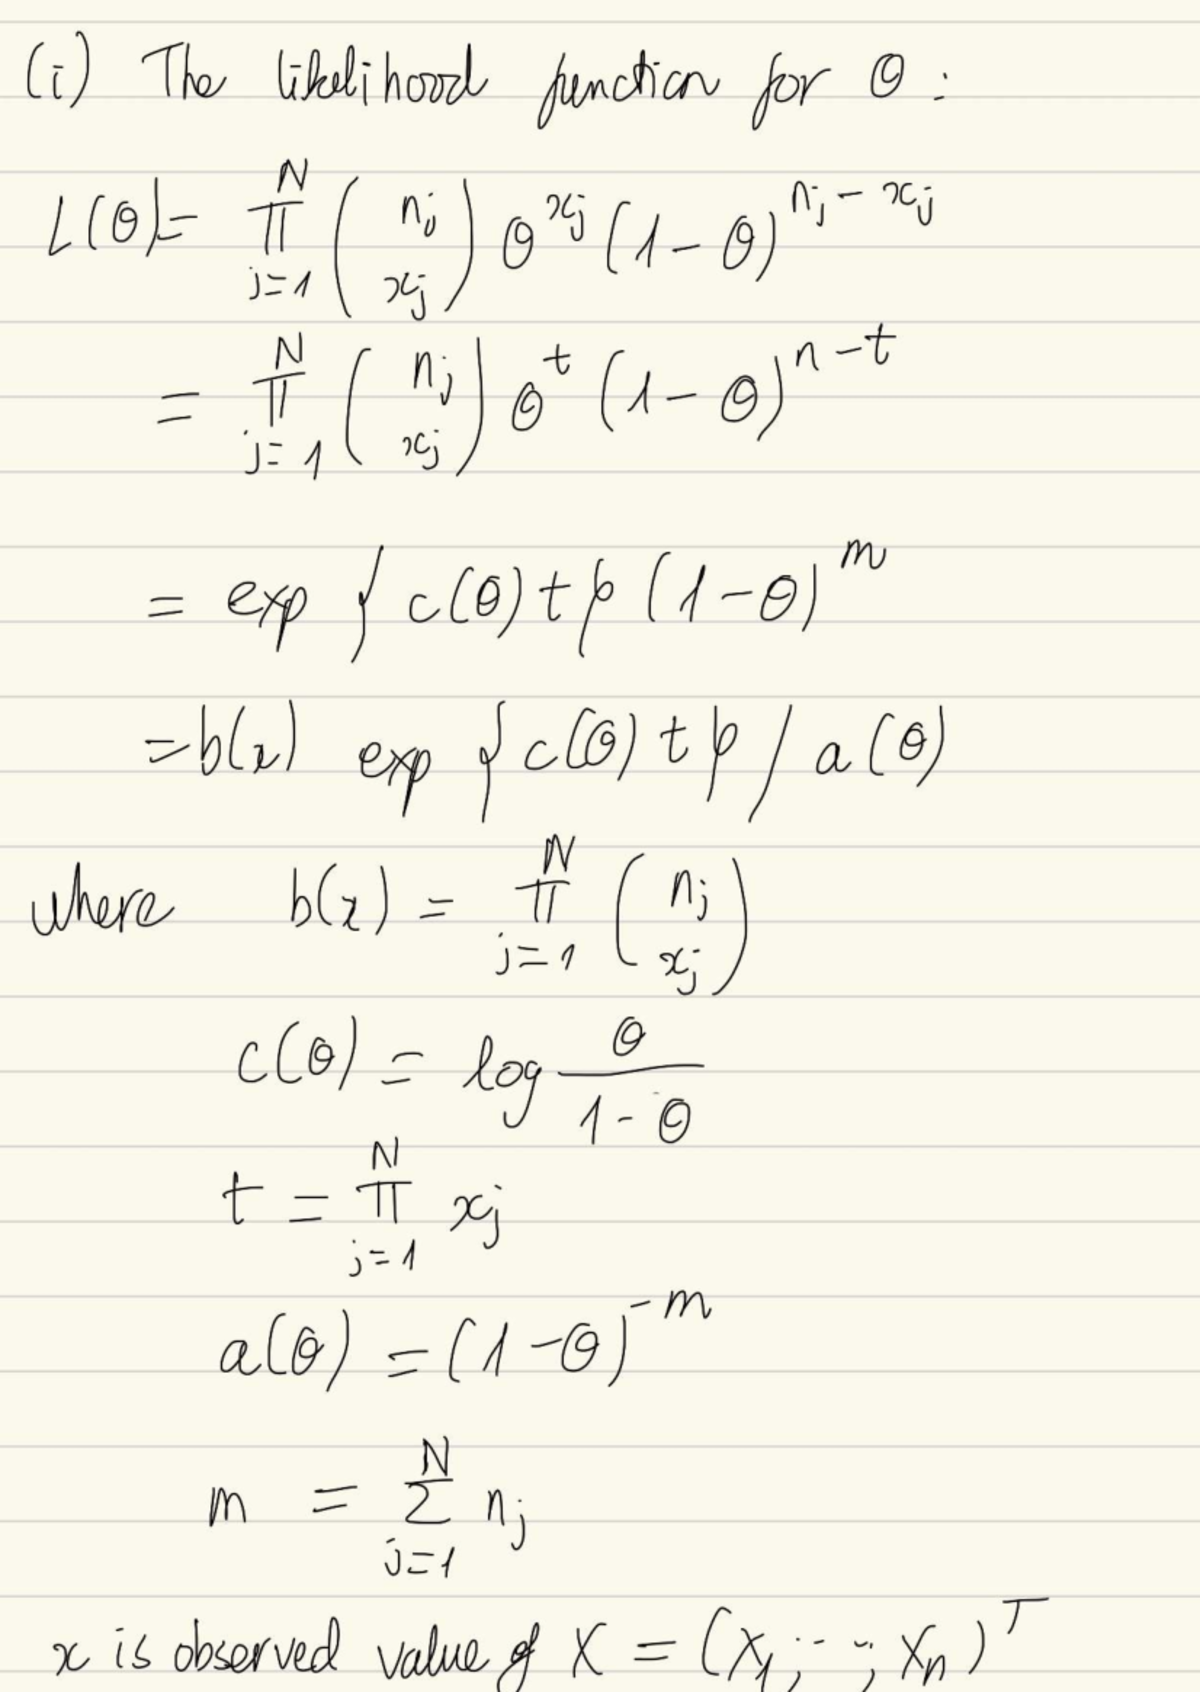 (i) The likelihood function for θ :
L(θ) = ∏_{j=1}^{N} (n_j x_j) θ^{x_j} (1 - θ)^{n_j - x_j}
= ∏_{j=1}^{N} (n_j x_j) θ^t (1 - θ)^{n - t}
= exp { c(θ) t } (1 - θ)^m
= b(x) exp { c(θ) t } / a(θ)
where b(x) = ∏_{j=1}^{N} (n_j x_j)
c(θ) = log θ / (1 - θ)
t = ∏_{j=1}^{N} x_j
a(θ) = (1 - θ)^{-m}
m = Σ_{j=1}^{N} n_j
x is observed value of X = (X_1, - - , X_n)^T